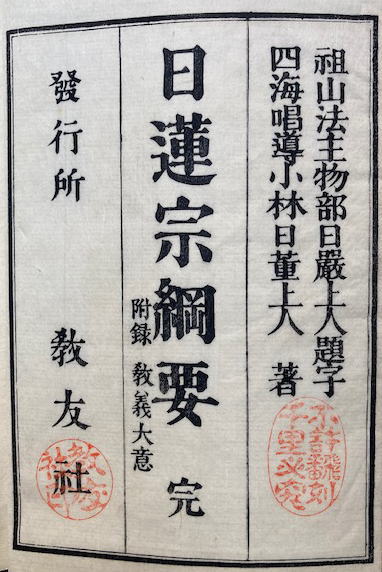 祖山法主物部日嚴上人題字
四海唱導小林日董上人 著
日蓮宗綱要 完
附録 敎義大意
發行所 敎友社
不許飜刻
千里必究